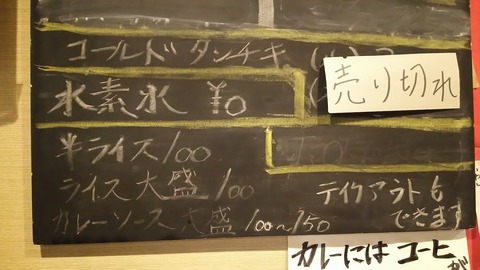 コールドタンチキ
売り切れ
水素水 ¥0
半ライス100
ライス大盛100
カレーソース大盛100〜150
テイクアウトも
できます
カレーには コーヒ
が